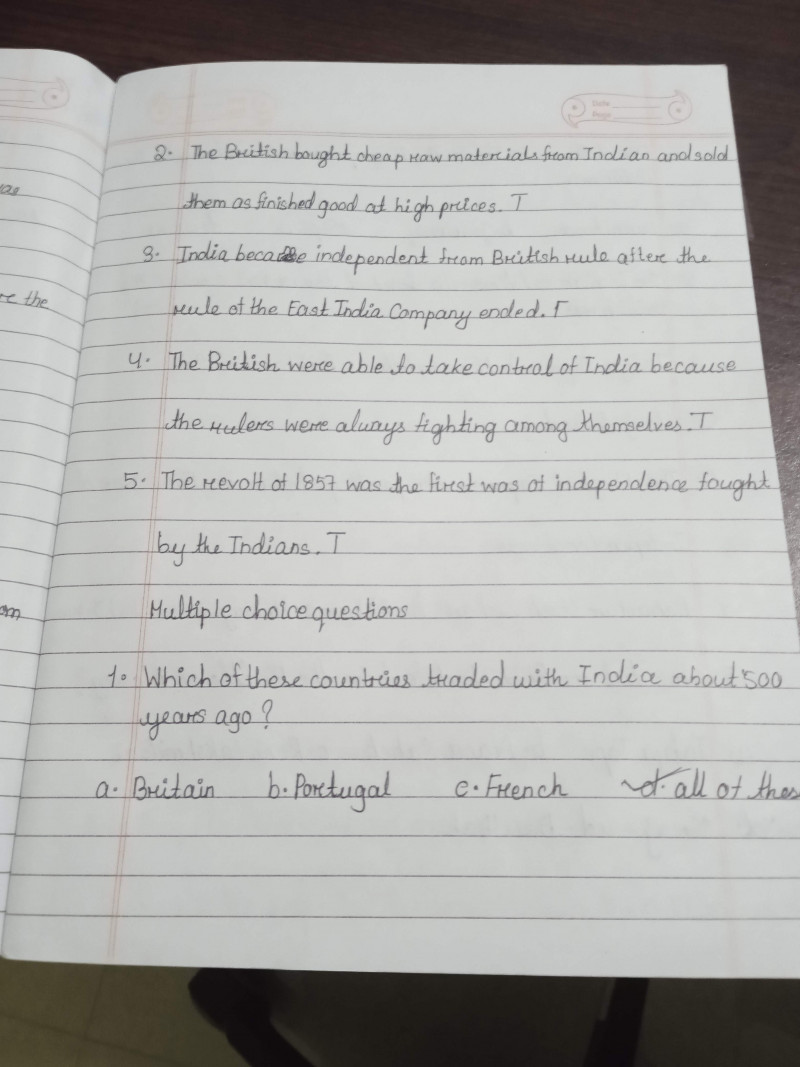 Date
Page
2. The British bought cheap raw materials from Indian and sold
them as finished good at high prices. T
3. India became independent from British rule after the
rule of the East India Company ended. F
4. The British were able to take control of India because
the rulers were always fighting among themselves. T
5. The revolt of 1857 was the first was of independence fought
by the Indians. T
Multiple choice questions
1. Which of these countries traded with India about 500
years ago?
a. Britain b. Portugal c. French d. all of thes
the